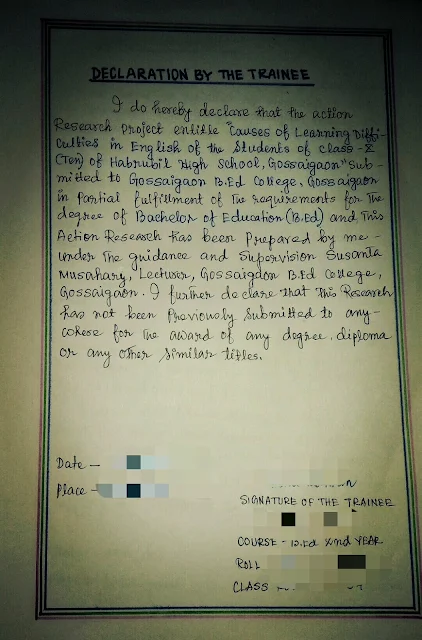 DECLARATION BY THE TRAINEE
I do hereby declare that the action
Research project entitle "Causes of Learning Diffi-
culties in English of the Students of class-X
(Ten) of Habrubil High School, Gossaigaon" Sub-
mitted to Gossaigaon B.Ed College, Gossaigaon
in Partial fulfillment of the requirements for the
degree of Bachelor of Education (B.Ed) and This
Action Research has been Prepared by me
under the guidance and Supervision Susanta
Musahary, Lecturer, Gossaigaon B.Ed College,
Gossaigaon. I further declare that This Research
has not been Previously Submitted to any-
where for the award of any degree, diploma
or any other similar titles.
Date -
Place -
SIGNATURE OF THE TRAINEE
COURSE - B.Ed IInd YEAR
ROLL
CLASS